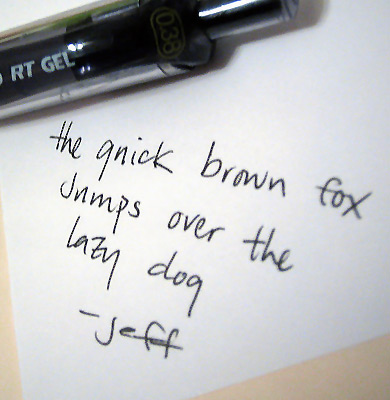 RT GEL
0.38
the quick brown fox
Jumps over the
lazy dog
-Jeff